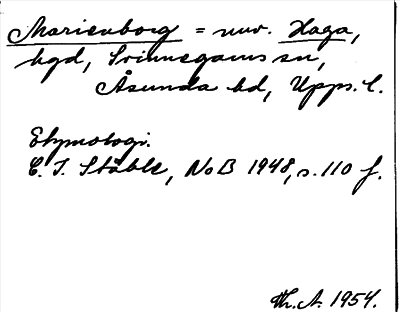 Marienborg = nuv. Haga,
bgd, Svinnegarns sn,
Åsunda hd, Upps. l.
Etymologi.
C. I. Ståhle, NoB 1948, s. 110 f.
Th. A. 1954.